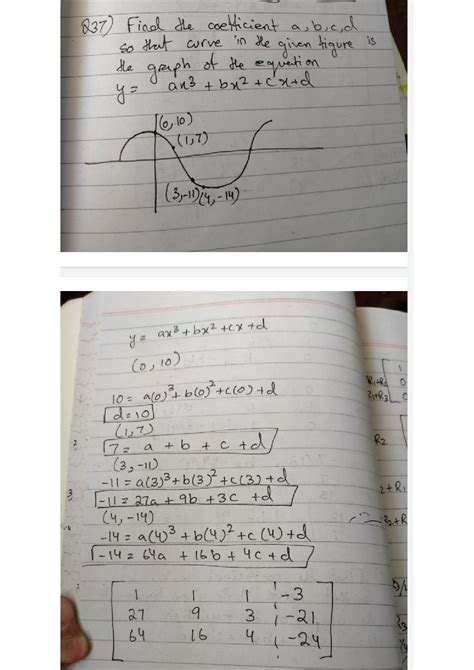 Q37) Find the coefficient a, b, c, d
so that curve in the given figure is
the graph of the equation
y = ax³ + bx² + cx + d
(0, 10)
(1, 7)
(3, -11) (4, -14)
y = ax³ + bx² + cx + d
(0, 10)
10 = a(0)³ + b(0)² + c(0) + d
d = 10
(1, 7)
7 = a + b + c + d
(3, -11)
-11 = a(3)³ + b(3)² + c(3) + d
-11 = 27a + 9b + 3c + d
(4, -14)
-14 = a(4)³ + b(4)² + c(4) + d
-14 = 64a + 16b + 4c + d
1 1 1 -3
27 9 3 -21
64 16 4 -24
R₂